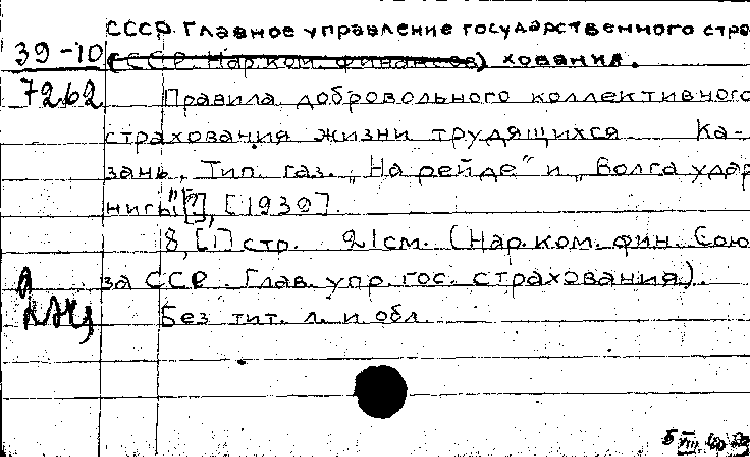 СССР. Главное управление государственного стра
39-10 (СССР. Нар.ком. финансов) хования.
7262 Правила добровольного коллективного
страхования жизни трудящихся Ка-
зань, Тип. газ. „На рейде" и „Волга удар
ница" [?], [1930].
8, [1] стр. 21см. (Нар.ком. фин. Сою
за ССР. Глав. упр. гос. страхования).
Без тит. л. и обл.